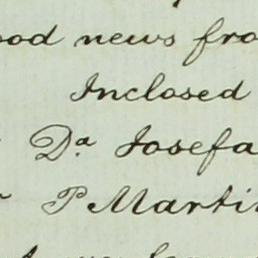 ood news fro
Inclosed
Da Josefa
P Martin